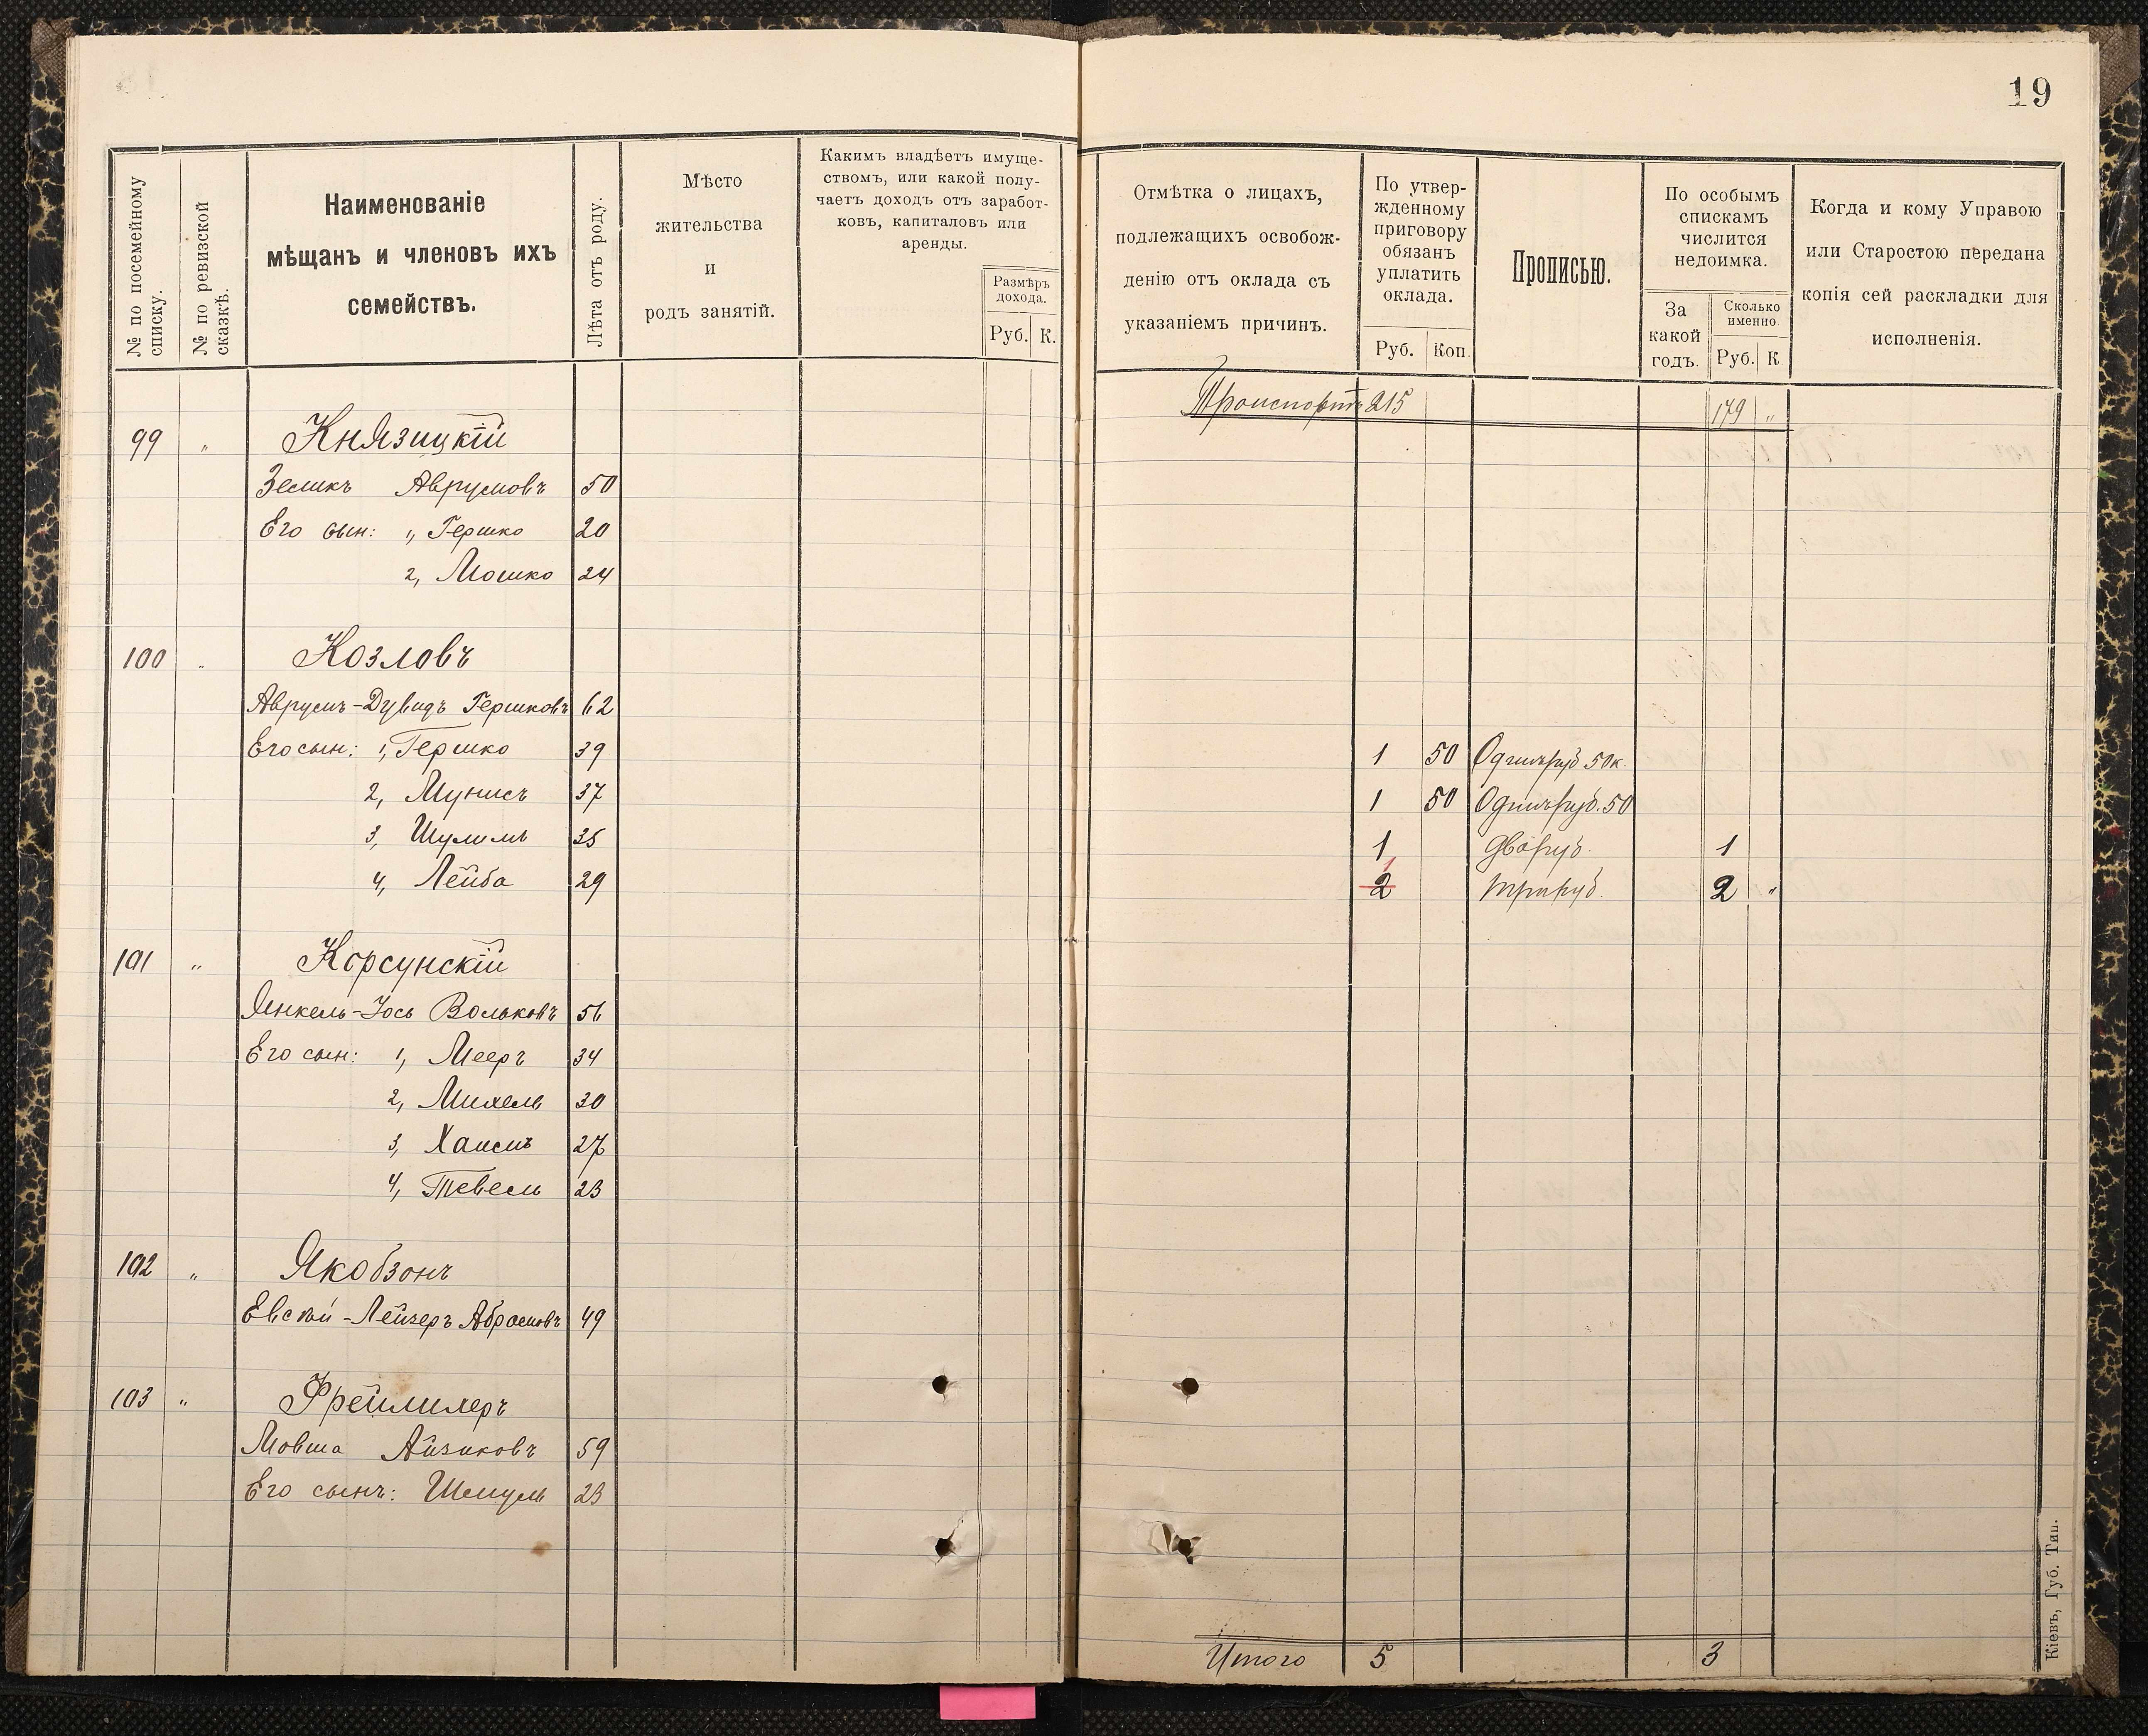 19
№ по посемейному списку.
№ по ревизской сказкѣ.
Наименованіе
мѣщанъ и членовъ ихъ
семействъ.
Лѣта отъ роду.
Мѣсто
жительства
и
родъ занятій.
Какимъ владѣетъ имуще-
ствомъ, или какой полу-
чаетъ доходъ отъ заработ-
ковъ, капиталовъ или
аренды.
Размѣръ
дохода.
Руб. К.
Отмѣтка о лицахъ,
подлежащихъ освобож-
денію отъ оклада съ
указаніемъ причинъ.
По утвер-
жденному
приговору
обязанъ
уплатить
оклада.
Руб. Коп.
Прописью.
По особымъ
спискамъ
числится
недоимка.
За
какой
годъ.
Сколько
именно.
Руб. К
Когда и кому Управою
или Старостою передана
копія сей раскладки для
исполненія.
Транспортъ 215 179 „
99 „ Князицкій
Зеликъ Аврумовъ 50
Его сын: 1, Гершко 20
2, Мошко 24
100 „ Козловъ
Аврумъ-Дувидъ Гершковъ 62
Его сын: 1, Гершко 39 1 50 Одинъ руб 50 к.
2, Мунисъ 37 1 50 Одинъ руб. 50
3, Шулимъ 35 1 Два руб. 1
4, Лейба 29 2 1 три руб. 2 „
101 „ Корсунскій
Янкель-Іось Вольковъ 56
Его сын: 1, Мееръ 34
2, Михель 30
3, Хаимъ 27
4, Тевель 23
102 „ Якобзонъ
Евсѣй-Лейзеръ Абрамовъ 49
103 „ Фрейлихеръ
Мовша Айзиковъ 59
Его сынъ: Шмуль 23
Итого 5 3
Кіевъ, Губ. Тип.